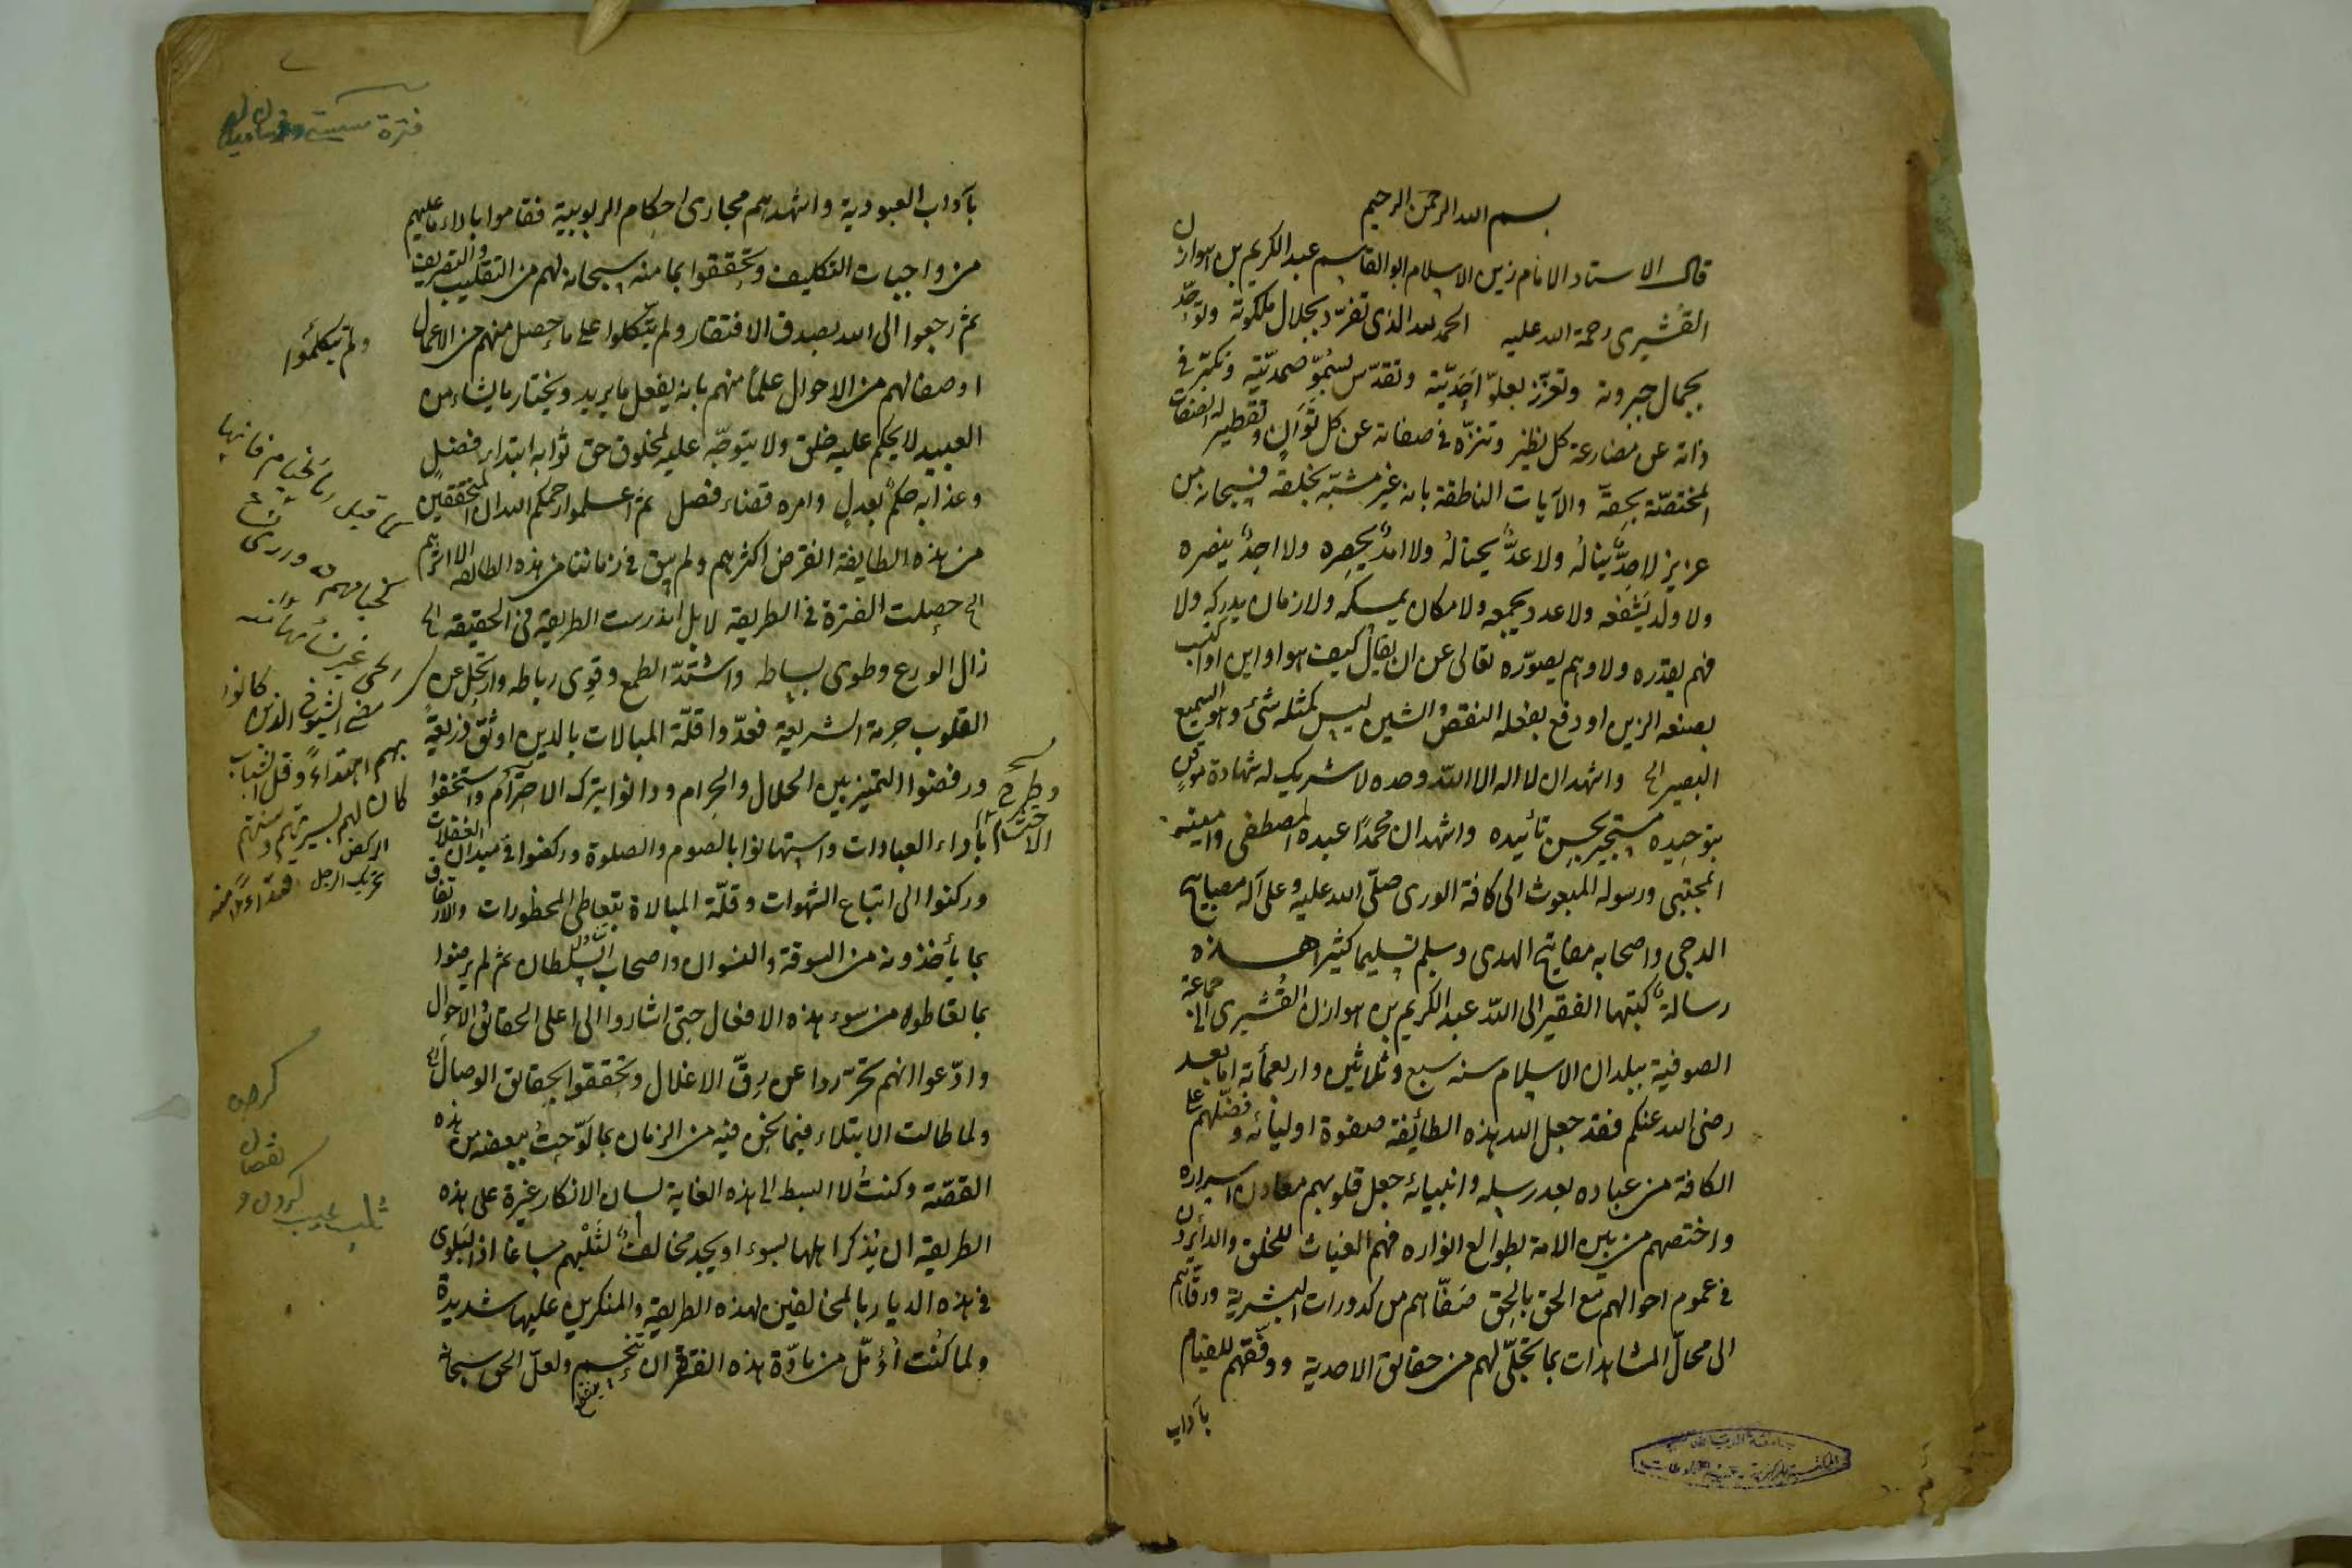 بسم الله الرحمن الرحيم
قال الاستاد الامام زين الاسلام ابو القاسم عبد الكريم بن هوازن
القُشيرى رحمة الله عليه الحمد لله الذى تفرّد بجلال ملكوته وتوحّد
بجمال جبروته وتعزّز بعلوّ اَحَديّته وتقدّس بسُمُوّ صمديّته وتكبّر فى
ذاته عن مضارعة كل نظير وتنزّه فى صفاته عن كل تَوانٍ وتقطير له الصفات
المختصّة بحقّه والآيات الناطقة بانه غير مشبّه بخلقه فسبحانه من
عزيز لا حدٌّ ينالهُ ولا عدٌّ يحتالهُ ولا امدٌ يحصره ولا احدٌ ينصره
ولا ولد يَشْفَعه ولا عدد يجمعه ولا مكان يمسكه ولا زمان يدركه ولا
فهم يقدّره ولا وهم يصوّره تعالى عن ان يقال كيف هو او اين هو او اكتسب
بصنعه الزين او دفع بفعله النقص والشين ليس كمثله شئ وهو السميع
البصير الخ واشهد ان لا اله الا الله وحده لا شريك له شهادة موقنٍ
بتوحيده مستجير بحسن تأئيده واشهد ان محمدًا عبده المصطفى وامينه
المجتبى ورسوله المبعوث الى كافة الورى صلّى الله عليه وعلى آله مصابيح
الدجى واصحابه مفاتيح الهدى وسلم تسليما كثيرا هذه
رسالةٌ كتبها الفقير الى الله عبد الكريم بن هوازن القُشيرى الى جماعة
الصوفية ببلدان الاسلام سنه سبع وثلاثين واربعمأته اما بعد
رضى الله عنكم فقد جعل الله هذه الطائفة صفوة اوليائه وفضّلهم على
الكافة من عباده بعد رسله وانبيائه جعل قلوبهم معادن اسراره
واختصهم من بين الامة بطوالع انواره فهم الغياث للخلق والدائرون
فى عموم احوالهم مع الحق بالحق صَفّاهم من كدورات البشرية ورقّاهم
الى محالّ المشاهدات بما تجلّى لهم من حقائق الاحدية ووفّقهم للقيام
بآداب
بآداب العبودية واشهدهم مجارى احكام الربوبية فقاموا باداء ما عليهم
من واجبات التكليف وتحققوا بما منه سبحانه لهم من التقليب والتصريف
ثم رجعوا الى الله بصدق الافتقار ولم يتّكلوا على ما حصل منهم من الاعمال
او صفا لهم من الاحوال علمًا منهم بانه يفعل ما يريد ويختار ما يشاء من
العبيد لا يحكم عليه خلق ولا يتوجّه عليه لمخلوق حق ثوابه ابتداء فضلٍ
وعذابه حكمٌ بعدلٍ وامره قضاء فصل ثم اعلموا رحمكم الله ان المحققين
من هذه الطايفة انقرض اكثرهم ولم يبق فى زماننا من هذه الطائفة الا اثرهم
الخ حصلت الفترة فى الطريقة لا بل اندرست الطريقة فى الحقيقه الخ
زال الورع وطوى بساطه واشتدّ الطمع وقوى رباطه وارتحل عن
القلوب حرمة الشريعة فعدّوا قلّة المبالات بالدين اوثق ذريعة
ورفضوا التميز بين الحلال والحرام ودانوا بترك الاحترام واستخفوا
باداء العبادات واستهانوا بالصوم والصلوة وركضوا فى ميدان الغفلات
وركنوا الى اتباع الشهوات وقلّة المبالاة بتعاطى المحظورات والارتفاق
بما يأخذونه من السوقة والنسوان واصحاب السلطان ثم لم يرضوا
بما تعاطوه من سوء هذه الافعال حتى اشاروا الى اعلى الحقائق والاحوال
وادّعوا انهم تحرّروا عن رِقّ الاغلال وتحققوا بحقايق الوصال الخ
ولما طالت الابتلاء فيما نحن فيه من الزمان بما لَوّحتُ ببعضه من هذه
القصّة وكنتُ لا ابسط الى هذه الغاية لسان الانكار غيرة على هذه
الطريقة ان يُذكر اهلها بسوء او يجد مخالفٌ لثَلْبهم مساغا اذ البلوى
فى هذه الديار بالمخالفين لهذه الطريقة والمنكرين عليها شديدة
ولما كنت اُؤمّل من مادّة هذه الفترة ان تنحسم ولعلّ الحق سبحانه
مضى الشيوخ الذين كانوا
بهم اهتداءٌ وقلّ الشباب
كان لهم بسيرتهم وسنتهم
الركض
تحريك الرجل
وطرح
الاحتشام
نقصان